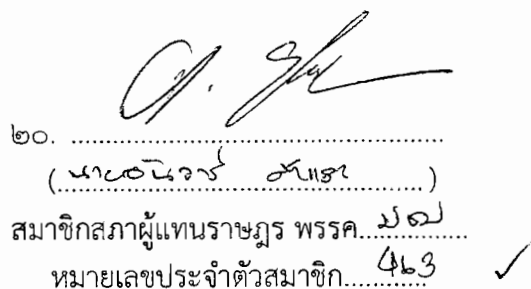 ๒๐. ........................................................
(นายอันวาร์ สาและ)
สมาชิกสภาผู้แทนราษฎร พรรค.....................
หมายเลขประจำตัวสมาชิก....463....